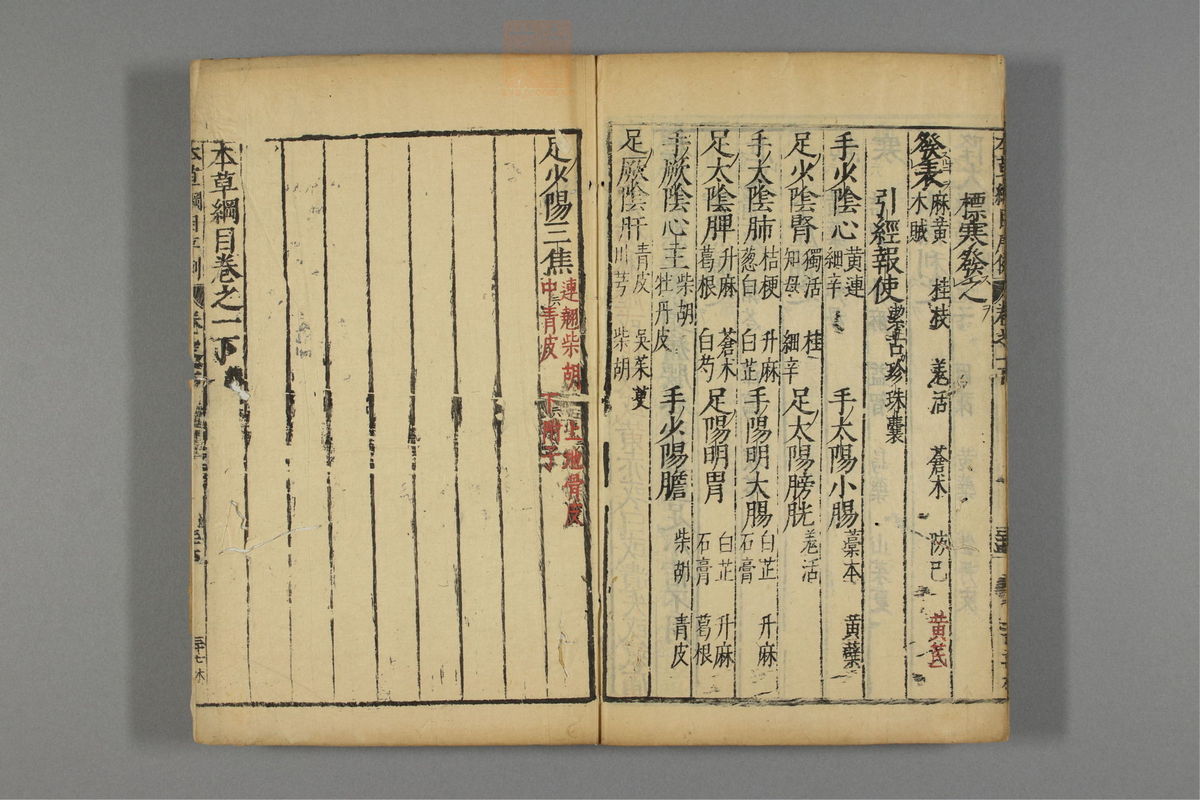 標寒發之
發表 麻黃 桂枝 羗活 蒼木 防己 黃芪
木賊
引經報使 潔古珍珠囊
手火陰心 黃連 細辛 手太陽小腸 藁本 黃蘗
足火陰腎 獨活 桂 知母 細辛 足太陽膀胱 羗活
手太陰肺 桔梗 升麻 葱白 白芷 手陽明大腸 白芷 升麻 石膏
足太陰脾 升麻 蒼木 葛根 白芍 足陽明胃 白芷 升麻 石膏 葛根
手厥陰心主 柴胡 牡丹皮 手火陽膽 柴胡 青皮
足厥陰肝 青皮 吳茱萸 川芎 柴胡
足火陽三焦 連翹 柴胡 上地骨皮 中青皮 下附子
本草綱目卷之一下